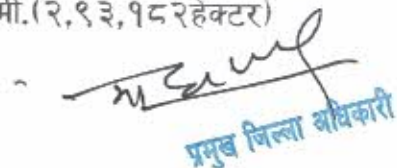 मी.(२,९३,१८२हेक्टर)
प्रमुख जिल्ला अधिकारी